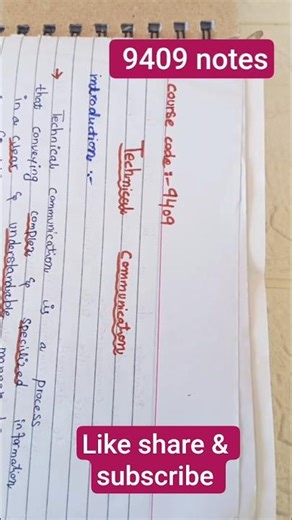 9409 notes
course code :- 9409
Technical Communication
introduction :-
→ Technical communication is a process
that conveying complex & specilized information
in a clear & understandable manner
Like share &
subscribe